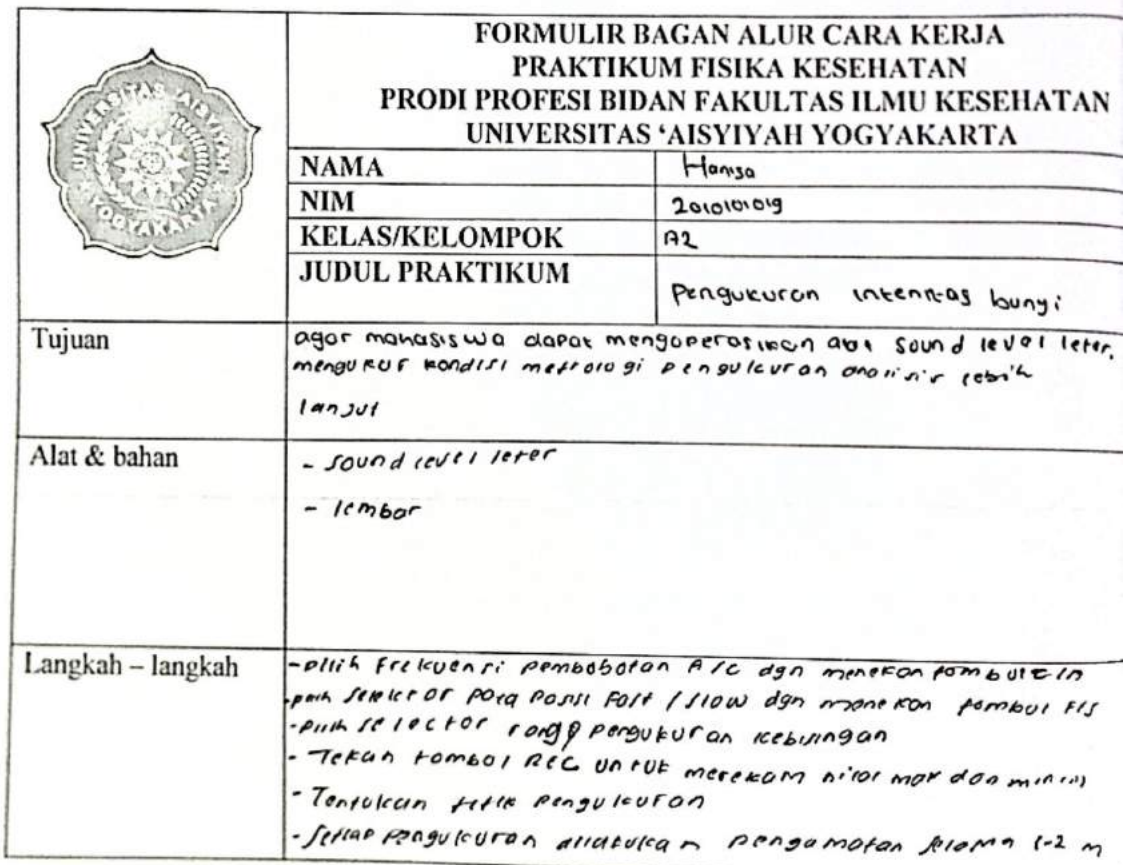 FORMULIR BAGAN ALUR CARA KERJA
PRAKTIKUM FISIKA KESEHATAN
PRODI PROFESI BIDAN FAKULTAS ILMU KESEHATAN
UNIVERSITAS ‘AISYIYAH YOGYAKARTA
UNIVERSITAS 'AISYIYAH YOGYAKARTA
NAMA Hanisa
NIM 2010101019
KELAS/KELOMPOK A2
JUDUL PRAKTIKUM Pengukuran intensitas bunyi
Tujuan agar mahasiswa dapat mengoperasikan alat sound level leter.
mengukur kondisi metrologi pengukuran analisis lebih
lanjut
Alat & bahan - sound level leter
- lembar
Langkah – langkah - pilih Frekuensi pembobotan A/C dgn menekan tombol
- pilih selektor pada posisi Fast / slow dgn menekan tombol F/S
- pilih selector range pengukuran kebisingan
- Tekan tombol REC untuk merekam nilai max dan min
- Tentukan titik pengukuran
- Setiap pengukuran dilakukan pengamatan selama 1-2 m